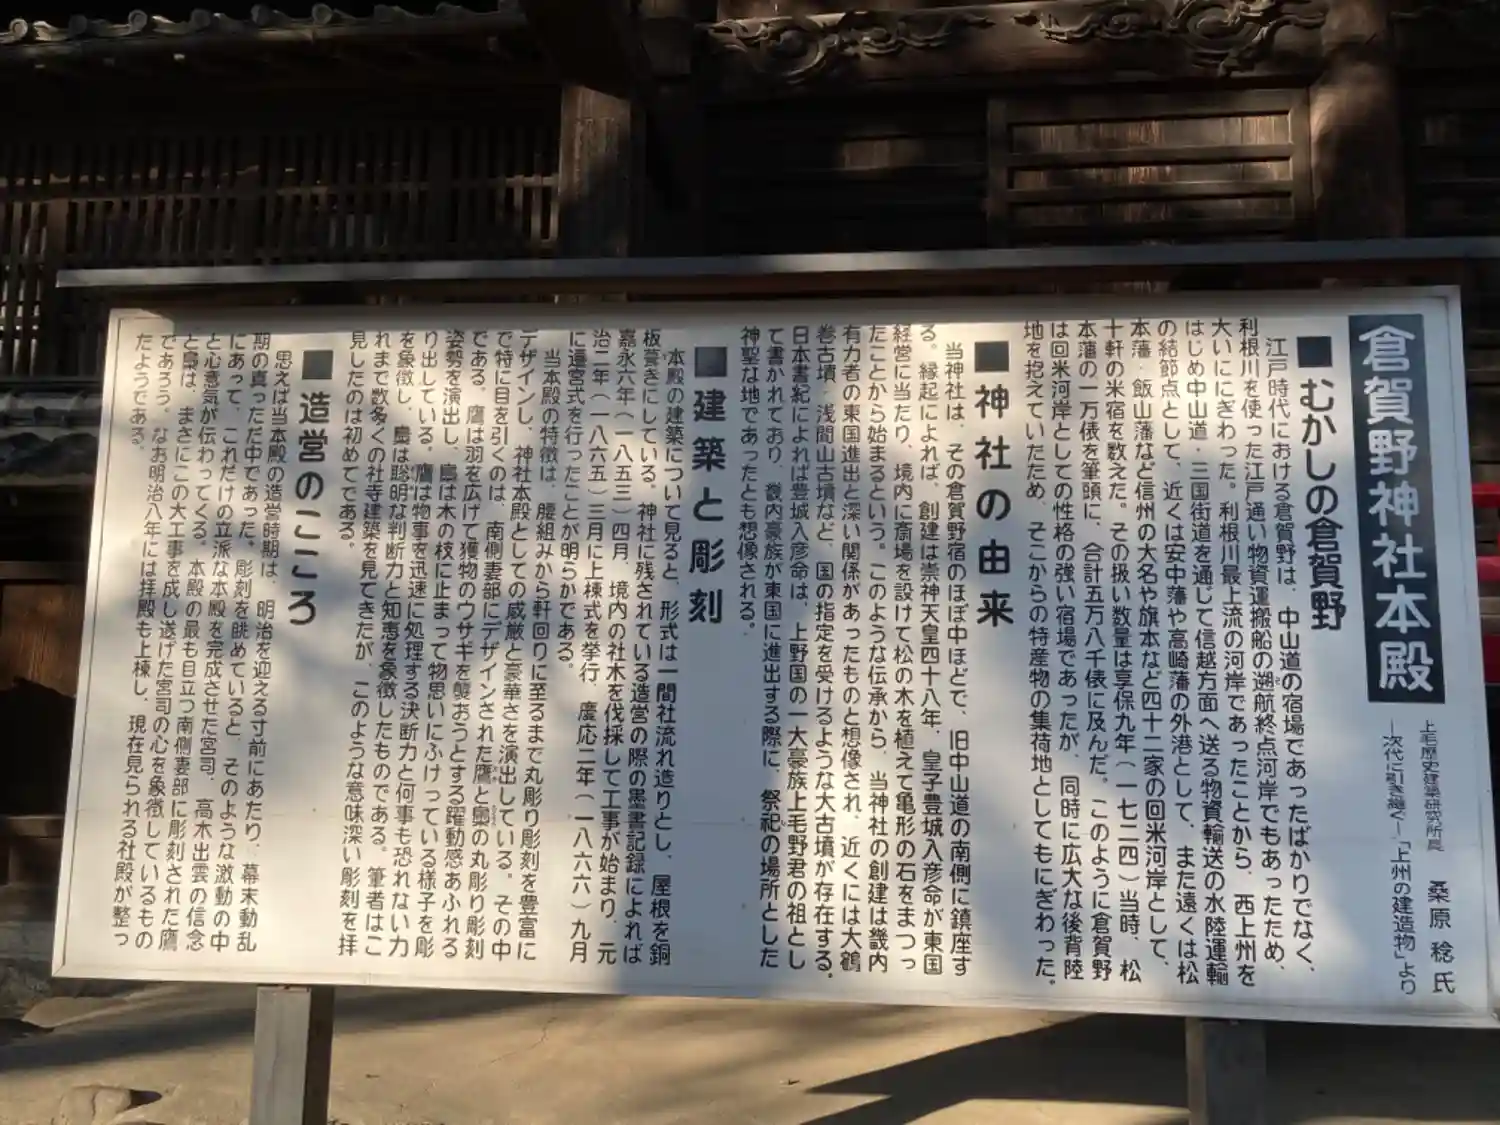 倉賀野神社本殿
上毛歴史建築研究所長　桑原稔氏
―次代に引き継ぐ―「上州の建造物」より
■むかしの倉賀野
江戸時代における倉賀野は、中山道の宿場であったばかりでなく、
利根川を使った江戸通い物資運搬船の遡航終点河岸でもあったため、
大いににぎわった。利根川最上流の河岸であったことから、西上州を
はじめ中山道・三国街道を通じて信越方面へ送る物資輸送の水陸運輸
の結節点として、近くは安中藩や高崎藩の外港として、また遠くは松
本藩・飯山藩など信州の大名や旗本など四十二家の回米河岸として、
十軒の米宿を数えた。その扱い数量は享保九年（一七二四）当時、松
本藩の一万俵を筆頭に、合計五万八千俵に及んだ。このように倉賀野
は回米河岸としての性格の強い宿場であったが、同時に広大な後背陸
地を抱えていたため、そこからの特産物の集荷地としてもにぎわった。
■神社の由来
当神社は、その倉賀野宿のほぼ中ほどで、旧中山道の南側に鎮座す
る。縁起によれば、創建は崇神天皇四十八年、皇子豊城入彦命が東国
経営に当たり、境内に斎場を設けて松の木を植えて亀形の石をまつっ
たことから始まるという。このような伝承から、当神社の創建は畿内
有力者の東国進出と深い関係があったものと想像され、近くには大鶴
巻古墳・浅間山古墳など、国の指定を受けるような大古墳が存在する。
日本書紀によれば豊城入彦命は、上野国の一大豪族上毛野君の祖とし
て書かれており、畿内豪族が東国に進出する際に、祭祀の場所とした
神聖な地であったとも想像される。
■建築と彫刻
本殿の建築について見ると、形式は一間社流れ造りとし、屋根を銅
板葺きにしている。神社に残されている造営の際の墨書記録によれば
嘉永六年（一八五三）四月、境内の社木を伐採して工事が始まり、元
治二年（一八六五）三月に上棟式を挙行、慶応二年（一八六六）九月
に遷宮式を行ったことが明らかである。
当本殿の特徴は、腰組みから軒回りに至るまで丸彫り彫刻を豊富に
デザインし、神社本殿としての威厳と豪華さを演出している。その中
で特に目を引くのは、南側妻部にデザインされた鷹と梟の丸彫り彫刻
である。鷹は羽を広げて獲物のウサギを襲おうとする躍動感あふれる
姿勢を演出し、梟は木の枝に止まって物思いにふけっている様子を彫
り出している。鷹は物事を迅速に処理する決断力と何事も恐れない力
を象徴し、梟は聡明な判断力と知恵を象徴したものである。筆者はこ
れまで数多くの社寺建築を見てきたが、このような意味深い彫刻を拝
見したのは初めてである。
■造営のこころ
思えば当本殿の造営時期は、明治を迎える寸前にあたり、幕末動乱
期の真っただ中であった。彫刻を眺めていると、そのような激動の中
にあって、これだけの立派な本殿を完成させた宮司、高木出雲の信念
と心意気が伝わってくる。本殿の最も目立つ南側妻部に彫刻された鷹
と梟は、まさにこの大工事を成し遂げた宮司の心を象徴しているもの
であろう。なお明治八年には拝殿も上棟し、現在見られる社殿が整っ
たようである。